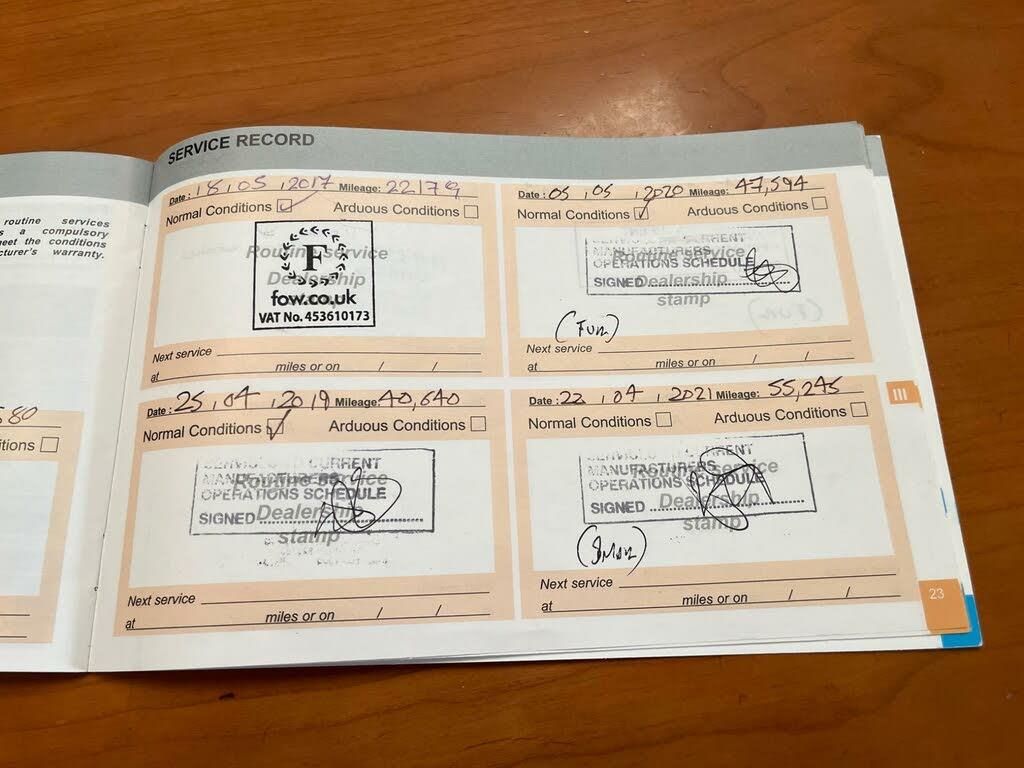 routine services
s a compulsory
neet the conditions
cturer's warranty.
580
itions
SERVICE RECORD
Date : 18 , 05 , 2017 Mileage: 22179
Normal Conditions Arduous Conditions
Routine service
Dealership
F
fow.co.uk
VAT No. 453610173
Next service
at miles or on / /
Date : 25 , 04 , 2019 Mileage: 40,640
Normal Conditions Arduous Conditions
CURRENT
MANUFACTURERS
OPERATIONS SCHEDULE
SIGNED
Routine service
Dealership
stamp
Next service
at miles or on / /
Date : 05 , 05 , 2020 Mileage: 47,594
Normal Conditions Arduous Conditions
CURRENT
MANUFACTURERS
OPERATIONS SCHEDULE
SIGNED
Routine service
Dealership
stamp
Next service
at miles or on / /
Date : 22 , 04 , 2021 Mileage: 55,245
Normal Conditions Arduous Conditions
MANUFACTURERS
OPERATIONS SCHEDULE
SIGNED
Routine service
Dealership
stamp
Next service
at miles or on / /
III
23